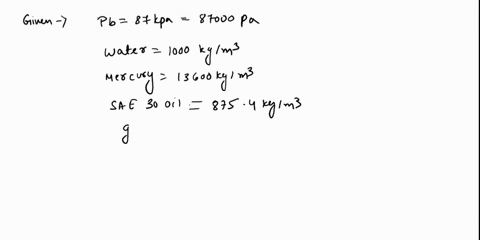 Given -> Pb = 87 kpa = 87000 Pa
water = 1000 kg/m³
Mercury = 13600 kg/m³
SAE 30 oil = 875.4 kg/m3
g